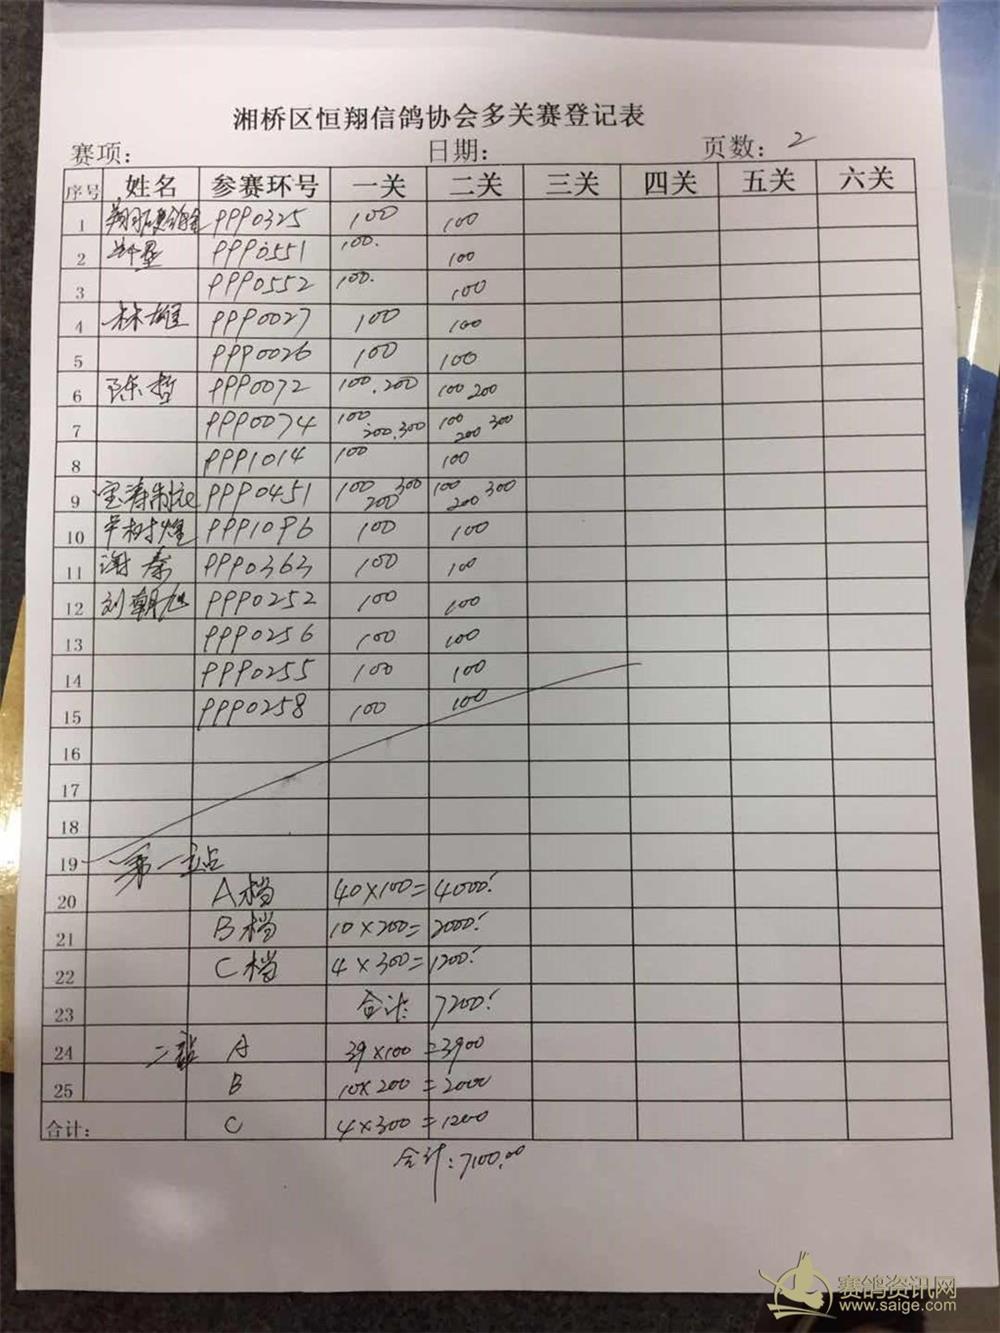 湘桥区恒翔信鸽协会多关赛登记表
赛项: 日期: 页数: 2
序号 姓名 参赛环号 一关 二关 三关 四关 五关 六关
1 PPP0325 100 100
2 PPP0551 100. 100
3 PPP0552 100. 100
4 林雄 PPP0027 100 100
5 PPP0026 100 100
6 陈哲 PPP0072 100.200 100 200
7 PPP0074 100 200.300 100 200 300
8 PPP1014 100 100
9 宝涛制衣 PPP0451 100 200 300 100 200 300
10 辛树煌 PPP1096 100 100
11 谢泰 PPP0363 100 100
12 刘朝旭 PPP0252 100 100
13 PPP0256 100 100
14 PPP0255 100 100
15 PPP0258 100 100
16
17
18
19 第一站
20 A档 40×100=4000.
21 B档 10×200=2000.
22 C档 4×300=1200.
23 合计: 7200.
24 二站 A 39×100=3900
25 B 10×200=2000
合计: C 4×300=1200
合计:7100.00
赛鸽资讯网
www.saige.com